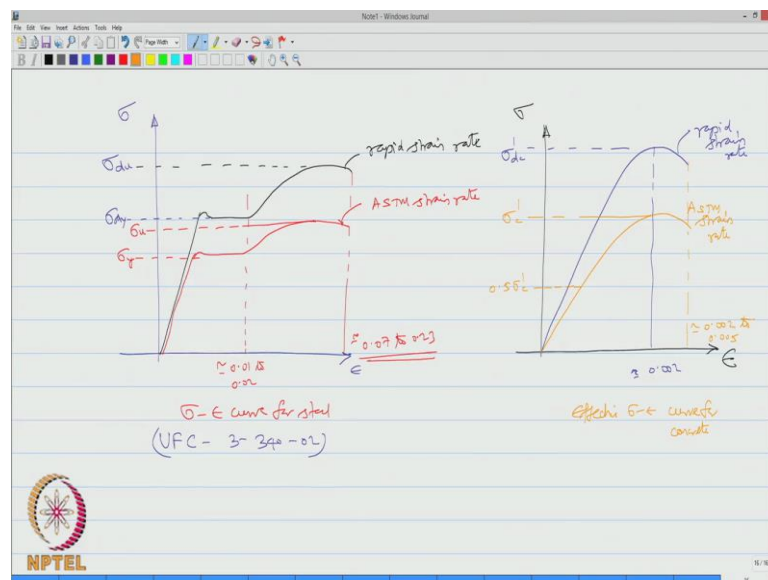 Note1 - Windows Journal
File Edit View Insert Actions Tools Help
Page Width
B I
σ
σdu
rapid strain rate
σdy
σu
ASTM strain rate
σy
≃ 0.01 to
0.02
≃ 0.07 to 0.23
ϵ
σ-ϵ curve for steel
(UFC - 3- 340 -02)
σ
σ'dc
rapid
strain
rate
σ'c
ASTM
strain
rate
0.5σ'c
≃ 0.002 to
0.005
0.002
ϵ
σ-ϵ curve for
concrete
NPTEL
16/16